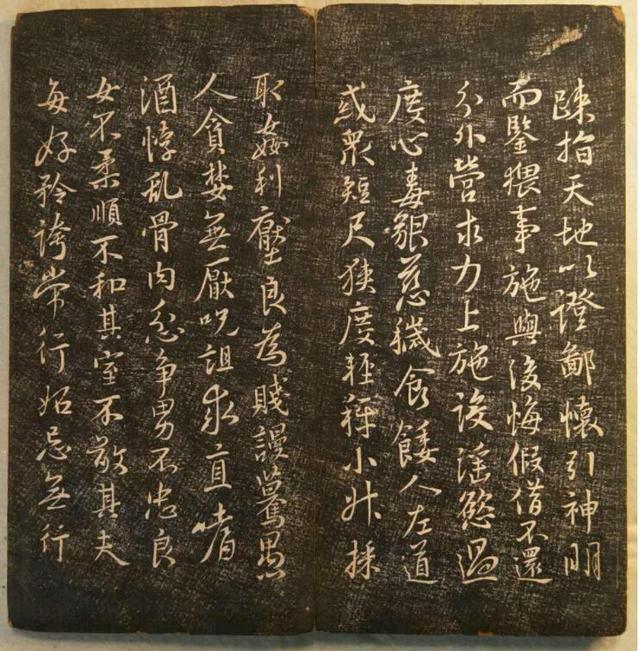 踈指天地以證鄙懷引神明
而鑒猥事施與後悔假借不還
分外營求力上施設滛慾過
度心毒貌慈穢食餧人左道
或衆短尺狹度輕秤小升採
取姦利壓良為賤謾驀愚
人貪婪無厭呪詛求直嗜
酒悖乱骨肉忿争男不忠良
女不柔順不和其室不敬其夫
每好矜誇常行妬忌無行